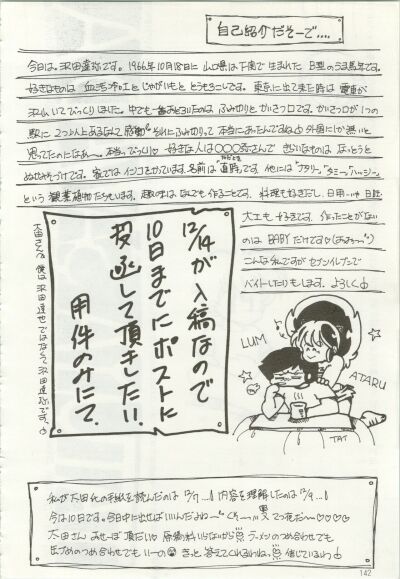 自己紹介だそーで....
今日は。沢田達弥です。1966年10月18日に 山口県は下関で 生まれた B型のうま年です。
好きなものは 血 とじゃがいもと とうもろこしです。 東京に出て来た時は 電車が
沢山いてびっくりしました。中でも一番おどろいたのは ふみ切りと かいさつ口です。かいさつ口が1つの
駅に 2つ以上あるなんて 感動 それにふみ切りって本当にあったんですね 外国にしか無いと
思ってたのになぁ〜。本当、びっくり♡ 好きな人は○○○弥さんで きらいなものは なっとうと
ぬかみそづけです。家では インコをかっています。名前は 直時です。他には
という 観葉植物たちもいます。趣味は なんでも 作ることです。 料理も好きだし、日用 日曜
大工も 好きです。作ったことがない
のは BABYだけです♡
こんな私ですが セブンイレブンで
バイトしたりもします。よろしく
12/14が入稿なので
10日までにポストに
投函して頂きたい。
用件のみにて。
太田さんへ 僕は沢田達也ではなくて沢田達弥です。
LUM
ATARU
TAT
私が太田氏の手紙を読んだのは 12/7...! 内容を理解したのは 12/9...!
今日は10日です。今日中に出せばいいんだよね〜 で夜だ〜♡♡♡♡
太田さん 頂だい 原稿料いらないから ラーメンのつめ合わせでも
のつめ合わせでも いーの きっと 答えてくれるわね、信じているわ
142